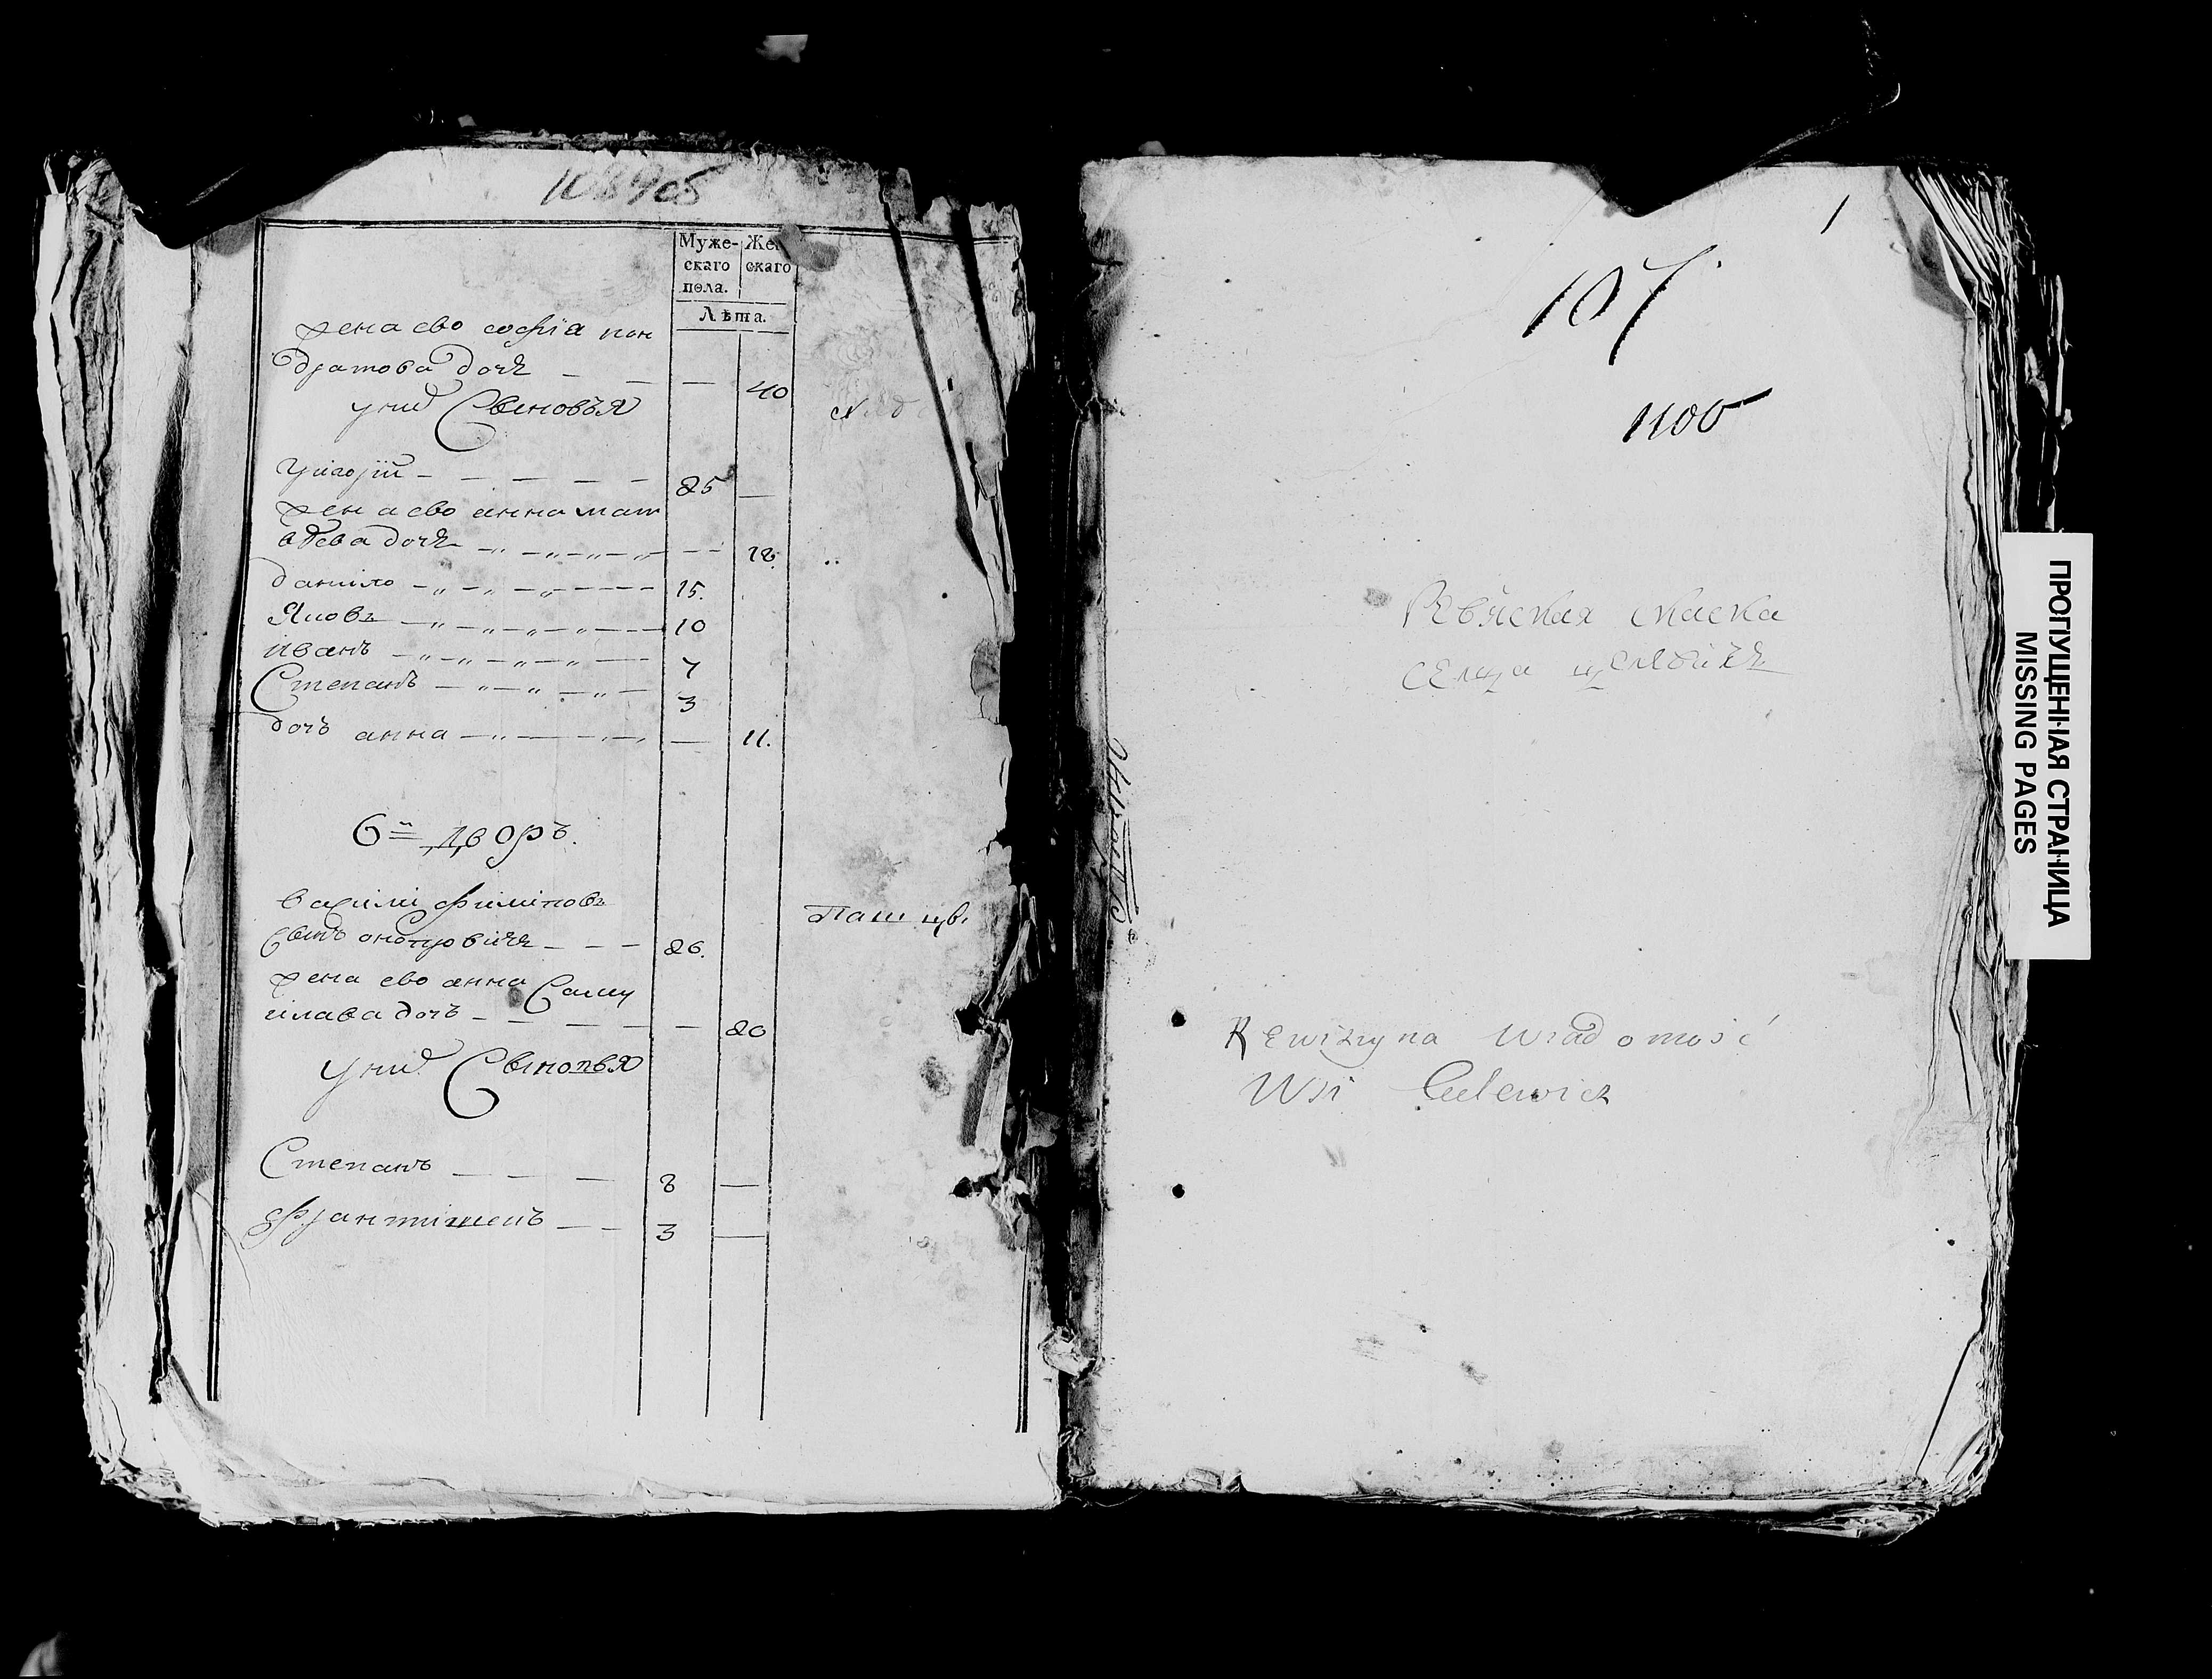 Муже-
скаго
пола.
скаго
Лѣта.
жена ево софія кон
дратова дочь — — — 40
у них Сыновья
Григорій — — — — — 25 —
жена ево анна мат
вѣева дочь — — — — — 18.
данило — — — — — 15.
Яковъ — — — — — 10
иванъ — — — — — 7
Степанъ — — — — 3
дочь анна — — — — — 11.
6й дворъ.
василий филиповъ
Сынъ — — — 26.
жена ево анна Саму
илава дочь — — — — — 20
у них Сыновья
Степанъ — — — 8 —
францишекъ — — 3 —
1
107
1100
Ревизская скаска
селца
Rewizyna wiadomość
Wsi Culewicz
ПРОПУЩЕННАЯ СТРАНИЦА
MISSING PAGES